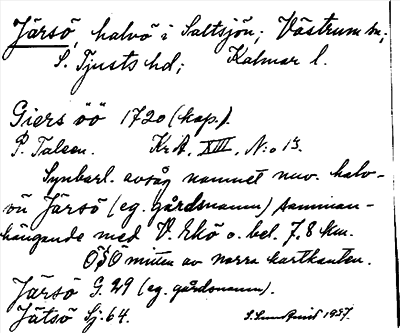 Järsö, halvö i Saltsjön; Västrum sn;
S. Tjusts hd; Kalmar l.
Giers öö 1720 (kop.).
P. Talcen. KrA. XIII, N:o 13.
Synbarl. avsåg namnet nuv. halv-
ön Järsö (eg. gårdsnamn) samman-
hängande med V. Ekö o. bel. 7,8 km.
ÖSÖ mitten av norra kartkanten.
Järsö G. 29 (eg. gårdsnamn).
Jätsö Sj. 64. S. Sundquist 1937.